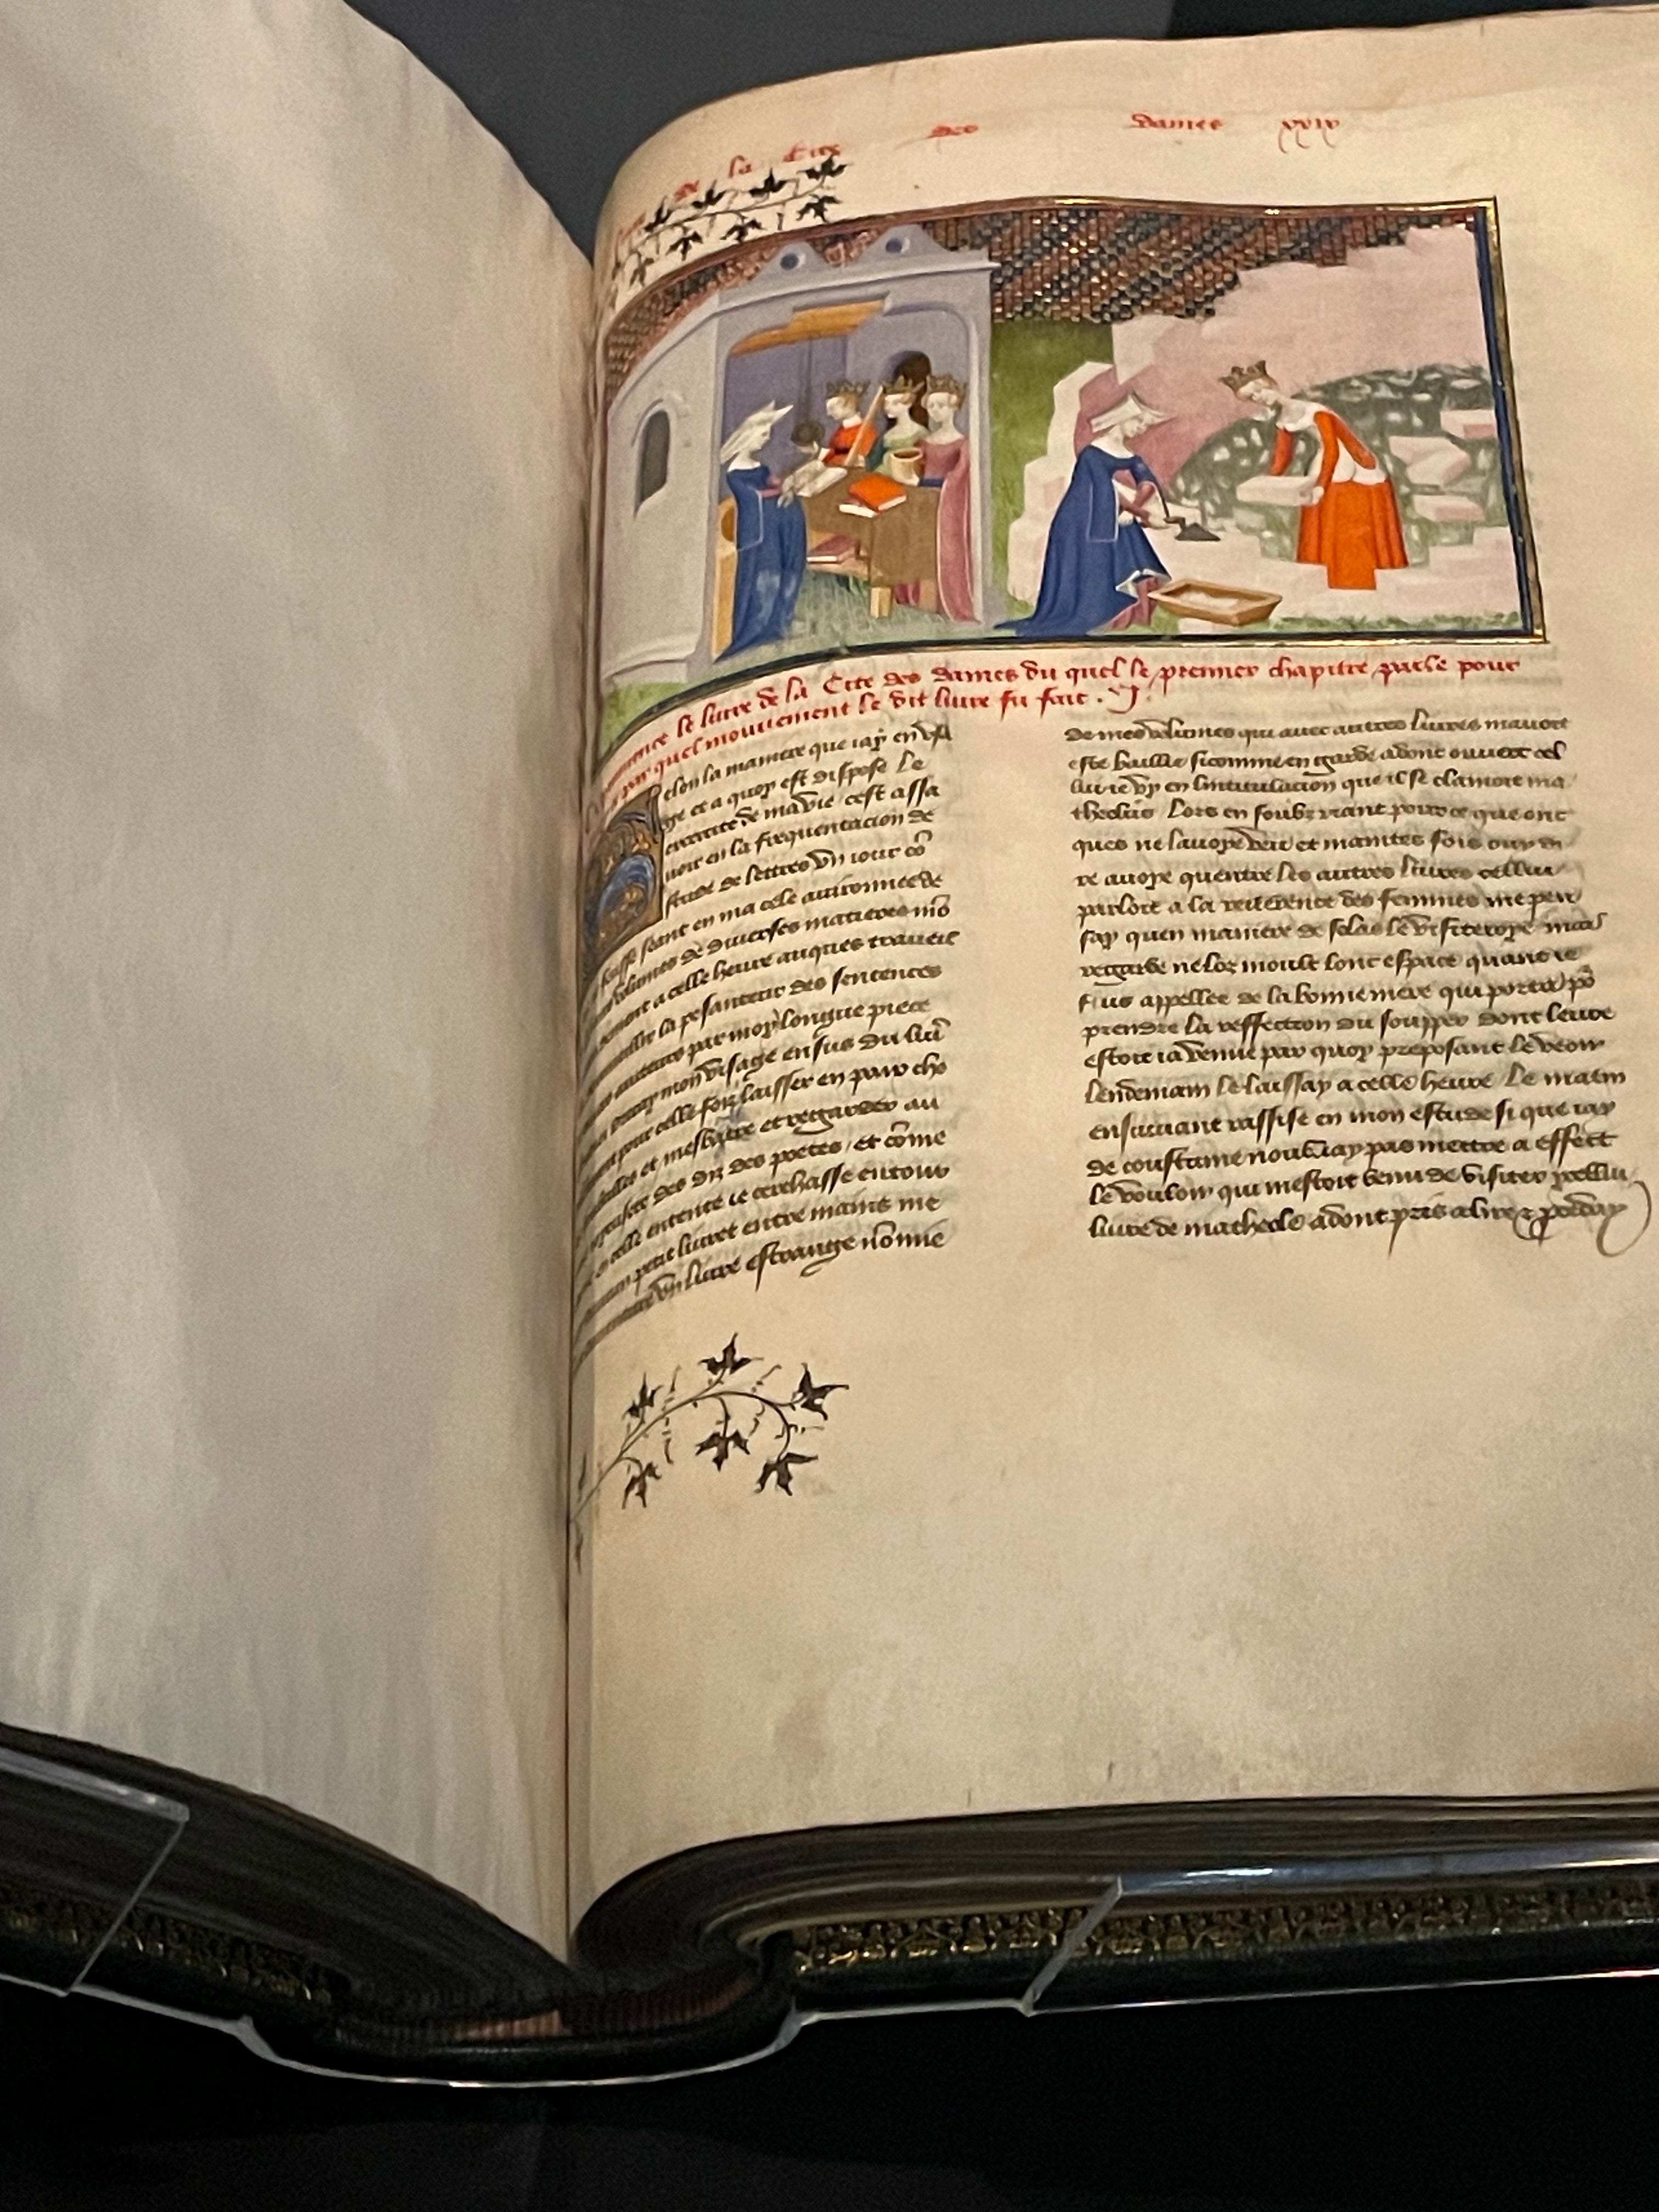 de la Cite des dames xxix
le liure de la Cite des dames du quel le premier chapitre parle pour
quoy et par quel mouuement le dit liure fu fait . j .
Selon la maniere que iay en vsa
ge et a quoy est dispose le
exercice de ma vie cest assa
uoir en la frequentacion de
estude de lettres vn iour cõ
feusse seant en ma cele auironnee de
volumes de diuerses matieres mõ
a celle heure auques traueil
la pesanteur des sentences
par moy longue piece
mon visage ensus du liũ
pour celle foiz laisser en paix cho
et mesbatre et regarder au
des diz des poetes, et cõme
en celle entente ie cerchasse entour
petit liuret entre mains me
vn liure estrange nõ mie
de mes volumes qui auec autres liures mauoit
este baillie si comme en garde adonc ouuert cel
lui ie vy en lintitulacion que il se clamoit ma
theolus Lors en soubzriant pour ce que onc
ques ne lauoye veu et maintes fois ouy di
re auoye quentre les autres liures cellui
parloit a la reuerence des femmes me pen
say quen maniere de solas le visiteroye mais
regarde ne loz moult lonc espace quant ie
fus appellee de la bonne mere qui porta põ
prendre la reffection du soupper dont leure
estoit ia venue par quoy proposant le veoir
lendemain le laissay a celle heure Le matin
ensuiuant rassise en mon estude si que iay
de coustume noubliay pas mettre a effect
le vouloir qui mestoit venu de visiter ycellui
liure de matheole adont pris a lire et proceday